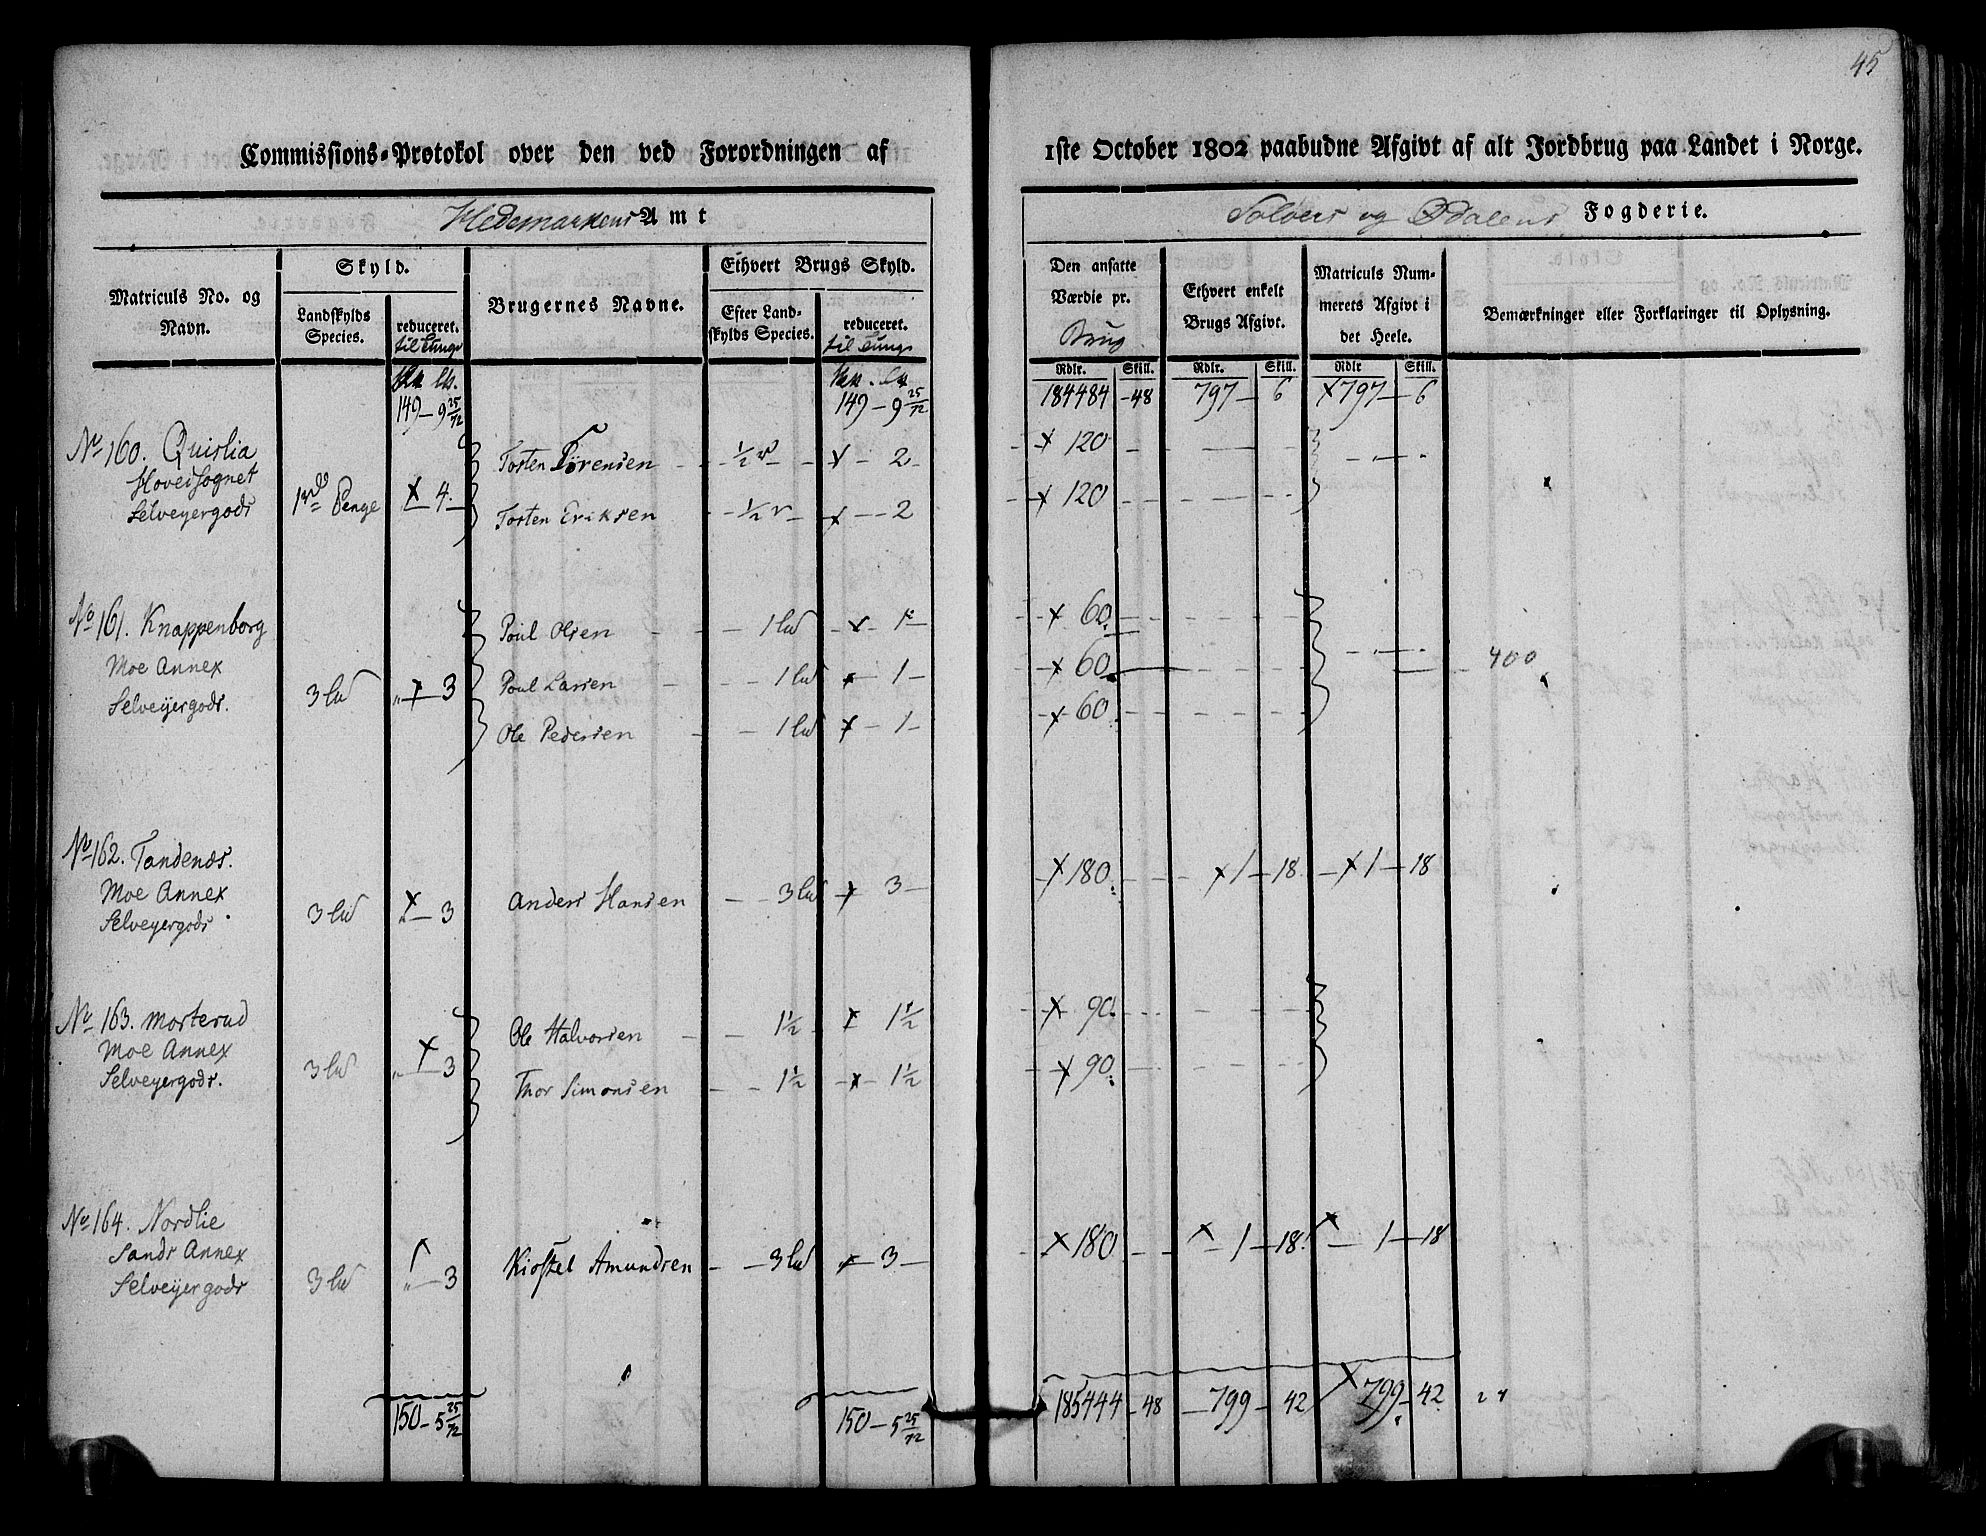 45
Commissions-Protokol over den ved Forordningen af 1ste October 1802 paabudne Afgivt af alt Jordbrug paa Landet i Norge.
Hedemarkens Amt
Soloers og Odalens Fogderie.
Matriculs No. og Navn.
Skyld.
Landskylds Species.
reduceret. til Tunge
Brugernes Navne.
Ethvert Brugs Skyld.
Efter Landskylds Species.
reduceret. til Tunge
Den ansatte Værdie pr. Brug
Rdlr. Skill.
Ethvert enkelt Brugs Afgivt.
Rdlr. Skill.
Matriculs Nummerets Afgivt i det Heele.
Rdlr Skill.
Bemærkninger eller Forklaringer til Oplysning.
149 - 9 25/72 149 - 9 25/72 184484 - 48 797 - 6 797 - 6
No 160. Quislia
Hovedsognet
Selveyergods
Penge 4
Tosten Törensen 1/2 2 120
Tosten Eriksen 1/2 2 120
No 161. Knappenborg
Moe Annex
Selveyergods.
3 3
Poul Olsen 1 1 60
Poul Larsen 1 1 60 400
Ole Pedersen 1 1 60
No 162. Tandenæs.
Moe Annex
Selveyergods
3 3
Anders Hansen 3 3 180 1 - 18 1 - 18
No 163. Morterud
Moe Annex
Selveyergods.
3 3
Ole Halvorsen 1 1/2 1 1/2 90
Thor Simonsen 1 1/2 1 1/2 90
No 164. Nordlie
Sands Annex
Selveyergods
3 3
Kiostel Amundsen 3 3 180 1 - 18 1 - 18
150 - 5 25/72 150 - 5 25/72 185444 - 48 799 - 42 799 - 42